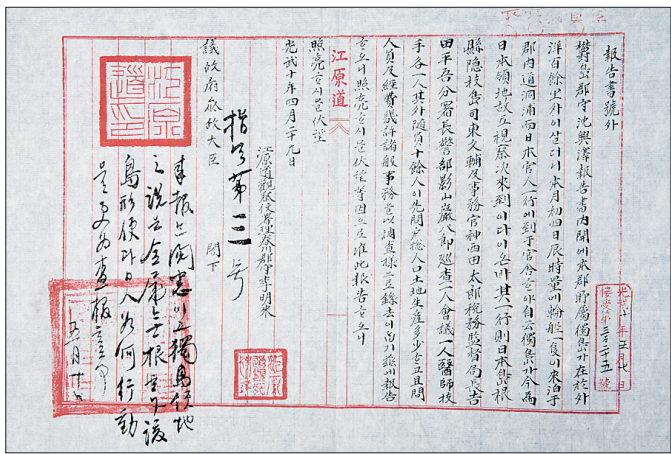 報告書號外
欝島郡守沈興澤報告書內開에本郡所屬獨島가在於外
洋百餘里外이살더니本月初四日辰時量에輪船一隻이來泊于
郡內道洞浦而日本官人一行에到于官舍ᄒᆞ야自云獨島가今爲
日本領地故로視察次來到이다이온바其一行則日本島根
縣隱技島司東文輔及事務官神西田太郞稅務監督局長吉
田平吾分署長警部影山巖八郞巡查一人會議一人醫師技
手各一人其外隨員十餘人이先問戶摠人口土地生産多少ᄒᆞ고且問
人員及經費幾許諸般事務을以調查樣으로錄去이압기玆에報告
ᄒᆞ오니照亮ᄒᆞ시믈伏望等因으로准此報告ᄒᆞ오니
照亮ᄒᆞ시믈伏望
江原道
光武十年四月二十九日
江原道觀察使署理春川郡守李明來
議政府參政大臣 閣下
指令第三号
來報은閱悉이고獨島領地
之說은全屬無根ᄒᆞ나該
島形便과日人如何行動
을更爲查報할事
五月廿日
光武十年五月七日
接受第三百二十五號